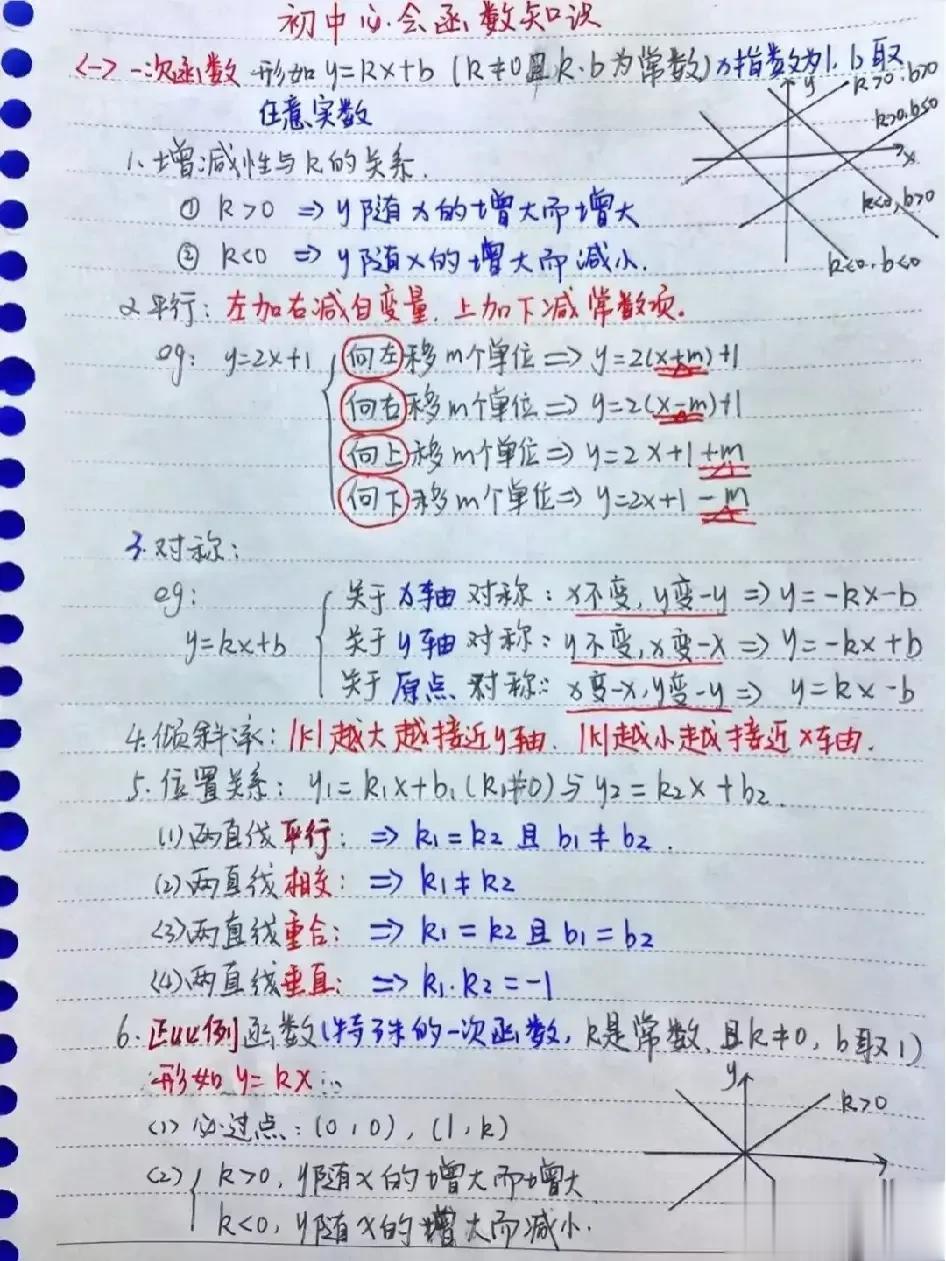 初中必会函数知识
<一> 一次函数 形如 y=kx+b (k≠0且k、b为常数) x指数为1. b取
任意实数
y
k>0.b>0
k>0.b<0
x
k<0,b>0
k<0.b<0
1.增减性与k的关系.
① k>0 ⇒ y随x的增大而增大
② k<0 ⇒ y随x的增大而减小.
2.平行：左加右减自变量，上加下减常数项.
eg: y=2x+1
向左移m个单位⇒ y=2(x+m)+1
向右移m个单位⇒ y=2(x-m)+1
向上移m个单位⇒ y=2x+1+m
向下移m个单位⇒ y=2x+1-m
3.对称：
eg:
y=kx+b
关于x轴对称：x不变,y变-y ⇒ y=-kx-b
关于y轴对称：y不变,x变-x ⇒ y=-kx+b
关于原点对称：x变-x,y变-y ⇒ y=kx-b
4.倾斜率：|k|越大越接近y轴. |k|越小越接近x轴.
5.位置关系：y₁=k₁x+b₁(k₁≠0)与y₂=k₂x+b₂.
(1)两直线平行：⇒ k₁=k₂且b₁≠b₂.
(2)两直线相交：⇒ k₁≠k₂
(3)两直线重合：⇒ k₁=k₂且b₁=b₂
(4)两直线垂直：⇒ k₁·k₂=-1
6.正比例函数(特殊的一次函数, k是常数、且k≠0, b取1)
形如 y=kx
y
k>0
(1) 必过点：(0,0), (1,k)
(2) k>0, y随x的增大而增大
k<0, y随x的增大而减小.